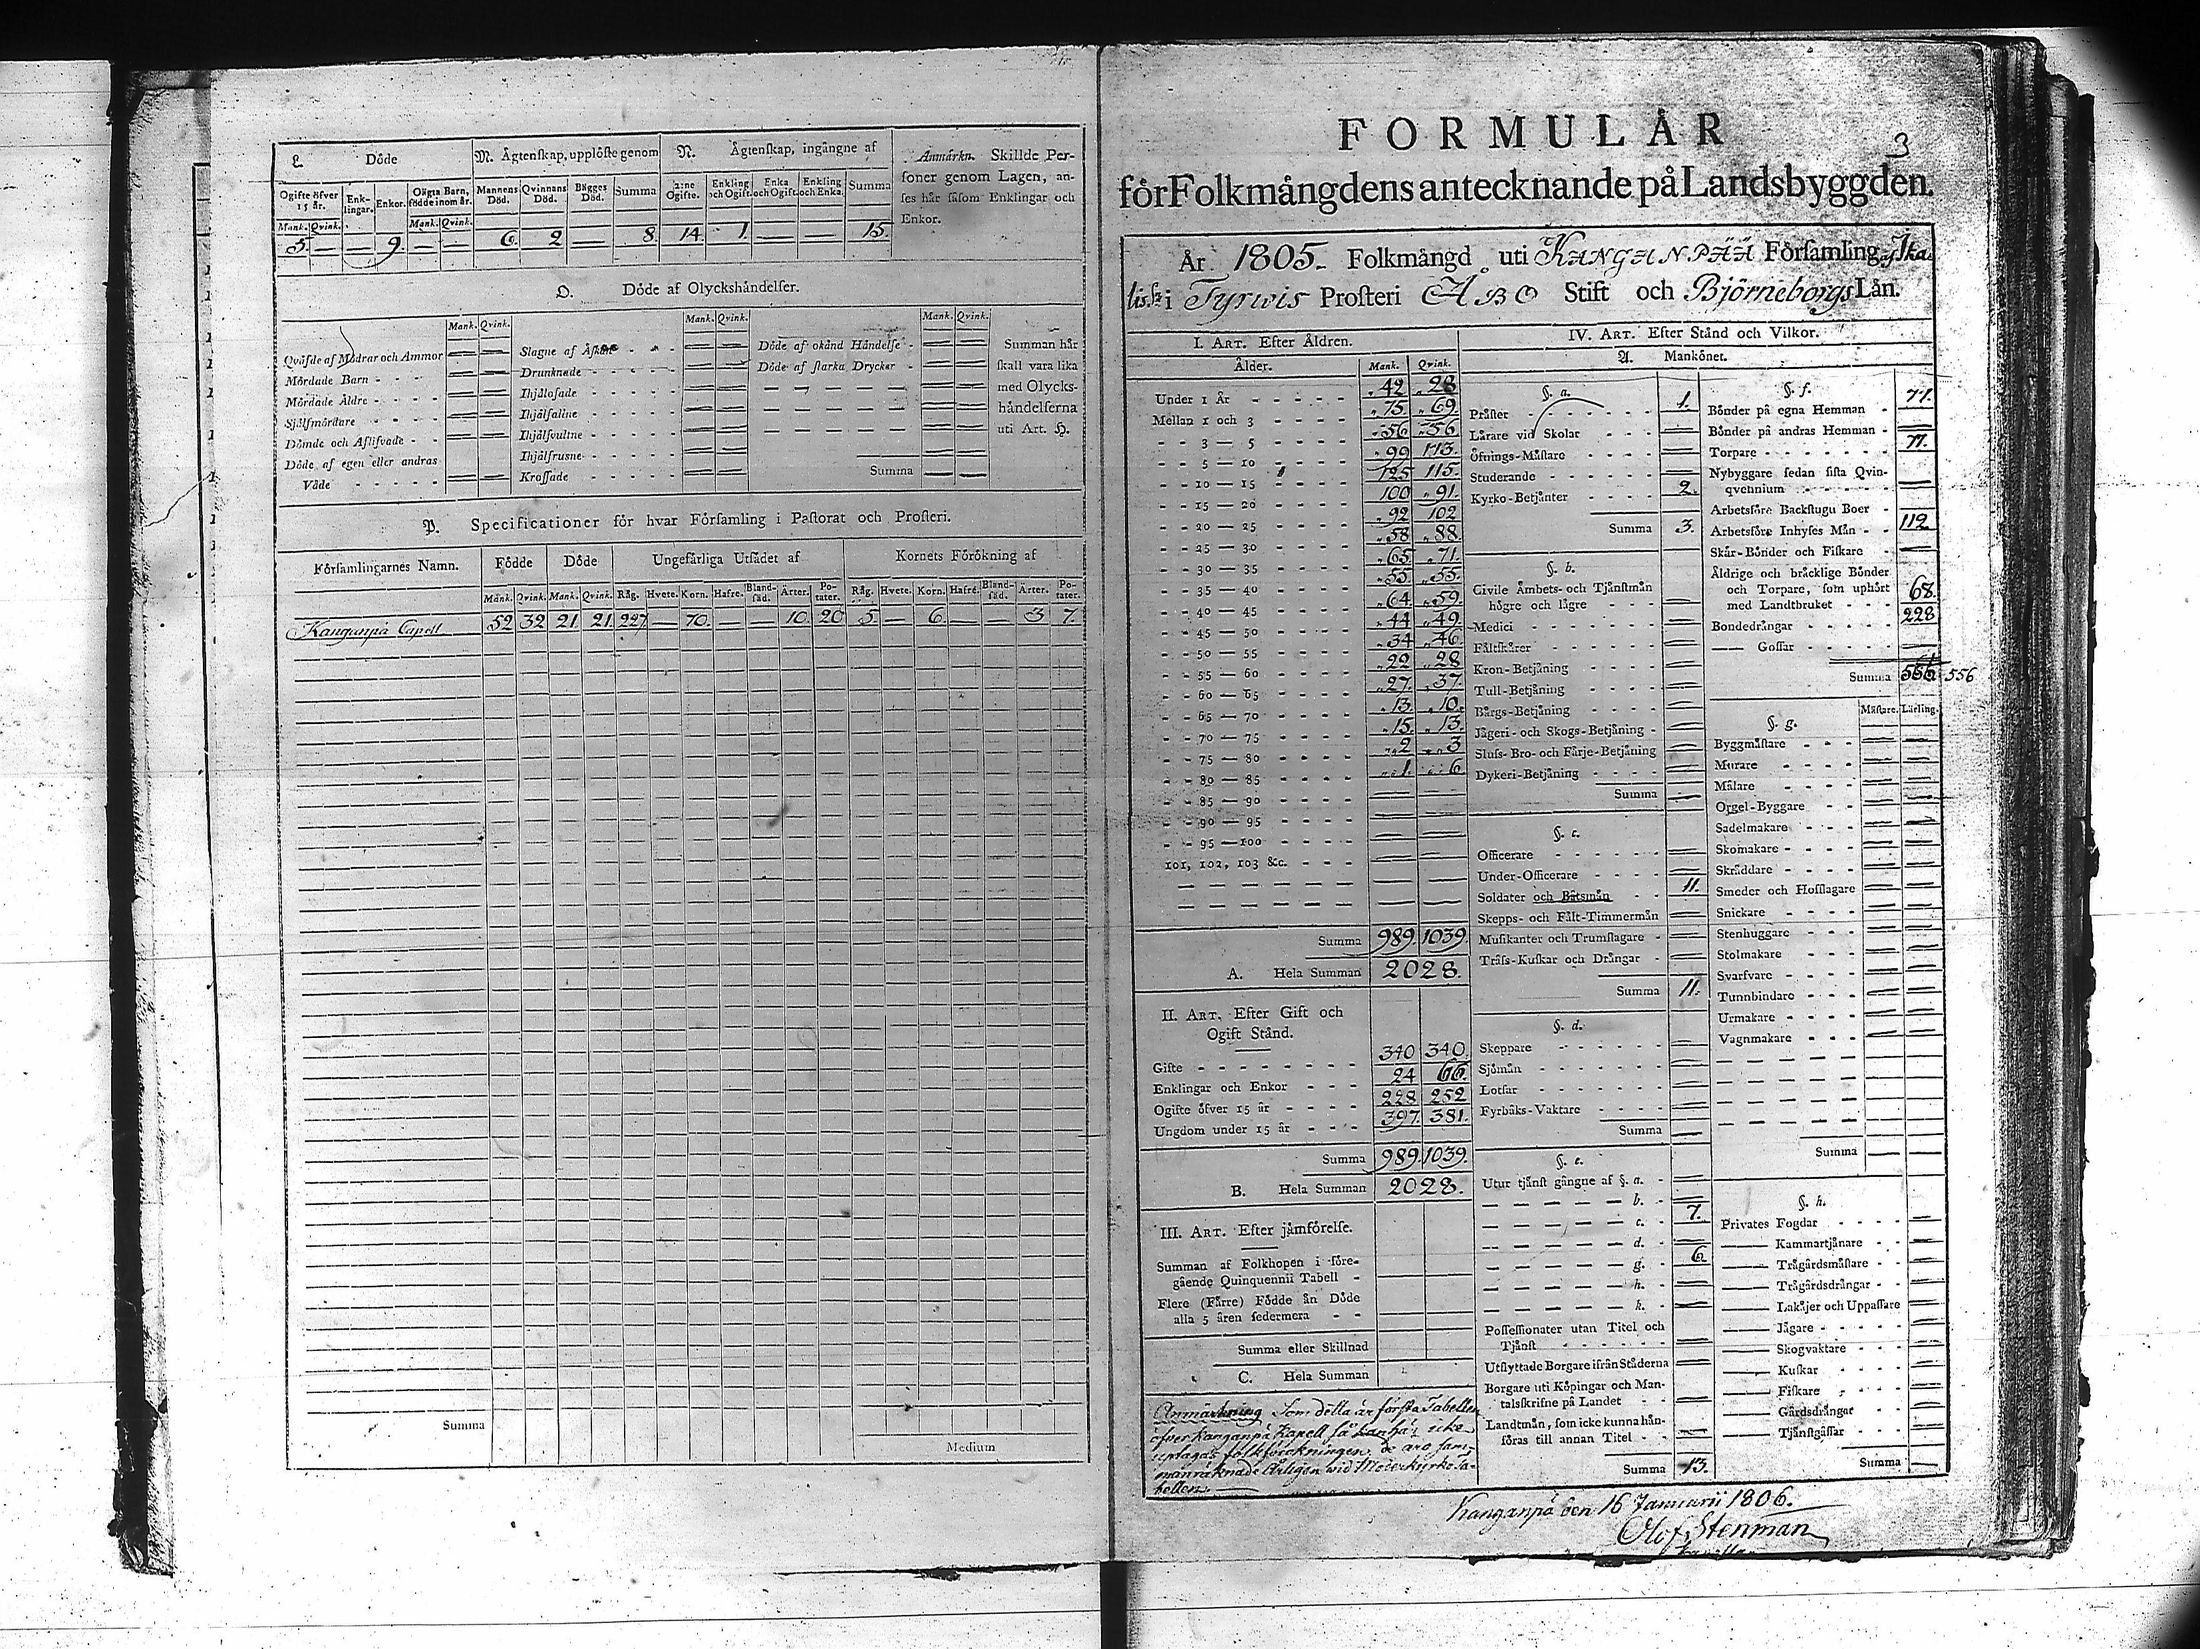 L Döde
M. Ägtenskap, uplöste genom
N. Ägtenskap, ingångne af
Anmärkn. Skillde Per-
soner genom Lagen, an-
ses här såsom Enklingar och
Enkor.
Ogifte öfver 15 år. Enk-lingar. Enkor. Oägta Barn, födde inom år. Mannens Död. Qvinnans Död. Bägges Död. Summa 2:ne Ogifte. Enkling och Ogift. Enka och Ogift. Enkling och Enka. Summa
Mank. Qvink. Mank. Qvink.
5. — — 9. — — 6. 2 — 8. 14. 1 — — 15.
O. Döde af Olyckshändelser.
Mank. Qvink. Mank. Qvink. Mank. Qvink.
Qväfde af Mödrar och Ammor — —
Mördade Barn - - - — —
Mördade Äldre - - - - — —
Själfmördare - - - - — —
Dömde och Aflifvade - - — —
Döde af egen eller andras
Våde - - - - - — —
Slagne af Åskan - - - — —
Drunknade - - - - — —
Ihjälosade - - - - — —
Ihjälfallne - - - - — —
Ihjälfvultne - - - - — —
Ihjälfrusne - - - - — —
Krossade - - - - — —
Döde af okänd Händelse - — —
Döde af starka Drycker - — —
Summa — —
Summan här
skall vara lika
med Olycks-
händelserna
uti Art. H.
P. Specificationer för hvar Församling i Pastorat och Prosteri.
Församlingarnes Namn. Födde Döde Ungefärliga Utsädet af Kornets Förökning af
Mank. Qvink. Mank. Qvink. Råg. Hvete. Korn. Hafre. Bland-säd. Ärter. Po-tater. Råg. Hvete. Korn. Hafre. Bland-säd. Ärter. Po-tater.
Kanganpä Capell 52 32 21. 21. 227 — 70. — — 10. 20 5. — 6. — — 3 7.
Summa
Medium
3
FORMULÄR
för Folkmängdens antecknande på Landsbyggden.
År 1805. Folkmängd uti KANGANPÄÄ Församling, Ika
lis i Tyrwis Prosteri ÅBO Stift och Björneborgs Län.
I. ART. Efter Åldren.
Ålder. Mank. Qvink.
Under 1 År - - - - - 42 28
Mellan 1 och 3 - - - - 75 69.
- - 3 — 5 - - - - 56 56
- - 5 — 10 - - - - 99 113.
- - 10 — 15 - - - - 125 115.
- - 15 — 20 - - - - 100 91.
- - 20 — 25 - - - - 92 102
- - 25 — 30 - - - - 58 88.
- - 30 — 35 - - - - 65 71.
- - 35 — 40 - - - - 55. 55.
- - 40 — 45 - - - - 64. 59.
- - 45 — 50 - - - - 44 49.
- - 50 — 55 - - - - 34 46.
- - 55 — 60 - - - - 22 28
- - 60 — 65 - - - - 27. 37.
- - 65 — 70 - - - - 13. 10.
- - 70 — 75 - - - - 15. 13.
- - 75 — 80 - - - - 2 3
- - 80 — 85 - - - - 1. 6.
- - 85 — 90 - - - - — —
- - 90 — 95 - - - - — —
- - 95 — 100 - - - - — —
101, 102, 103 &c. - - - — —
Summa 989. 1039.
A. Hela Summan 2028.
II. ART. Efter Gift och
Ogift Stånd.
Gifte - - - - - - - 340 340.
Enklingar och Enkor - - - 24 66.
Ogifte öfver 15 år - - - - 228 252
Ungdom under 15 år - - - 397. 381.
Summa 989. 1039.
B. Hela Summan 2028.
III. ART. Efter jämförelse.
Summan af Folkhopen i före-
gående Quinquennii Tabell -
Flere (Färre) Födde än Döde
alla 5 åren sedermera - -
Summa eller Skillnad
C. Hela Summan
Anmärkning Som detta är första Tabellen
öfver Kanganpä Kapell så kan här icke
uptagas folkförökningen, de äro sam-
manräknade Årligen wid Moderkyrko Ta-
bellen.
IV. ART. Efter Stånd och Vilkor.
A. Mankönet.
§. a.
Präster - - - - - - 1.
Lärare vid Skolar - - - —
Öfnings-Mästare - - - —
Studerande - - - - - —
Kyrko-Betjänter - - - - 2.
Summa 3.
§. b.
Civile Ämbets- och Tjänstmän
högre och lägre - - - —
Medici - - - - - - —
Fältskärer - - - - - —
Kron-Betjäning - - - - —
Tull-Betjäning - - - - —
Bärgs-Betjäning - - - - —
Jägeri- och Skogs-Betjäning - —
Sluss- Bro- och Färje-Betjäning —
Dykeri-Betjäning - - - - —
Summa —
§. c.
Officerare - - - - - —
Under-Officerare - - - - —
Soldater och Båtsmän - - 11.
Skepps- och Fält-Timmermän —
Musikanter och Trumslagare - —
Träss-Kuskar och Drängar - —
Summa 11.
§. d.
Skeppare - - - - - - —
Sjömän - - - - - - —
Lotsar - - - - - - —
Fyrbåks-Vaktare - - - - —
Summa —
§. e.
Utur tjänst gångne af §. a. - —
— — — — — b. - —
— — — — — c. - 7.
— — — — — d. - —
— — — — — g. - 6
— — — — — h. - —
— — — — — k. - —
Possessionater utan Titel och
Tjänst - - - - - - —
Utflyttade Borgare ifrån Städerna —
Borgare uti Köpingar och Man-
talsskrifne på Landet - - —
Landtmän, som icke kunna hän-
föras till annan Titel - - —
Summa 13.
§. f.
Bönder på egna Hemman - 71.
Bönder på andras Hemman - —
Torpare - - - - - - 77.
Nybyggare sedan sista Qvin-
qvennium - - - - - —
Arbetsföre Backstugu Boer - —
Arbetsföre Inhyses Män - - 112
Skär-Bönder och Fiskare - —
Äldrige och bräcklige Bönder
och Torpare, som uphört
med Landtbruket - - - 68.
Bondedrängar - - - - - 228
—— Gossar - - - - - —
Summa 556 556
§. g. Mästare. Lärling.
Byggmästare - - - — —
Murare - - - - — —
Målare - - - - — —
Orgel-Byggare - - — —
Sadelmakare - - - — —
Skomakare - - - — —
Skräddare - - - - — —
Smeder och Hofslagare — —
Snickare - - - - — —
Stenhuggare - - - — —
Stolmakare - - - — —
Svarfvare - - - - — —
Tunnbindare - - - — —
Urmakare - - - - — —
Vagnmakare - - - — —
Summa —
§. h.
Privates Fogdar - - - - —
—— Kammartjänare - - —
—— Trägårdsmästare - - —
—— Trägårdsdrängar - - —
—— Lakäjer och Uppassare —
—— Jägare - - - - - —
—— Skogvaktare - - - —
—— Kuskar - - - - —
—— Fiskare - - - - —
—— Gårdsdrängar - - - —
—— Tjänstgåssar - - - —
Summa —
Kanganpä den 16 Januarii 1806.
Olof Stenman